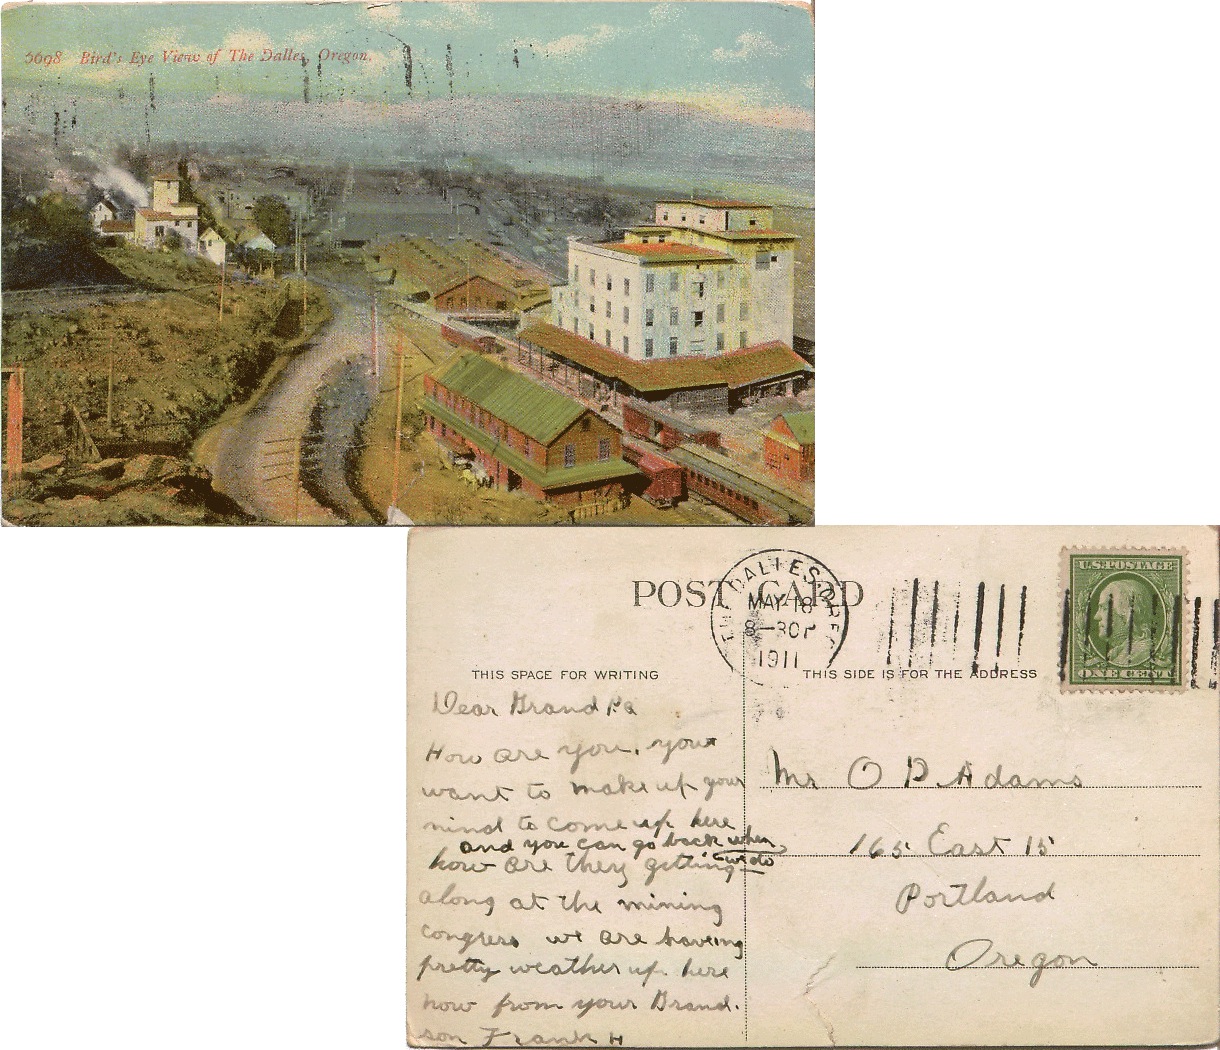 5698 Bird's Eye View of The Dalles, Oregon.
POST CARD
THE DALLES, OREG.
MAY 18
8-30P
1911
U.S. POSTAGE
ONE CENT
THIS SPACE FOR WRITING
THIS SIDE IS FOR THE ADDRESS
Dear Grand Pa
How are you, your
want to make up your
mind to come up here
and you can go back when
we do
how are they getting
along at the mining
congress we are having
pretty weather up here
now from your Grand.
son Frank H
Mr O P Adams
165 East 15
Portland
Oregon